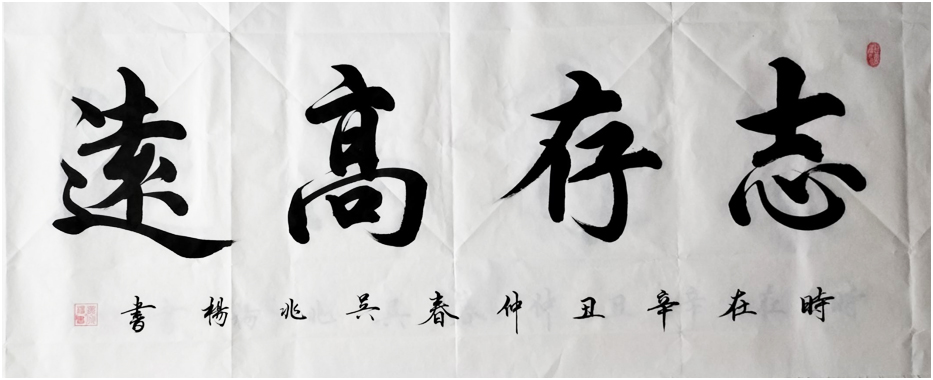 志存高遠
時在辛丑仲春吳兆楊書